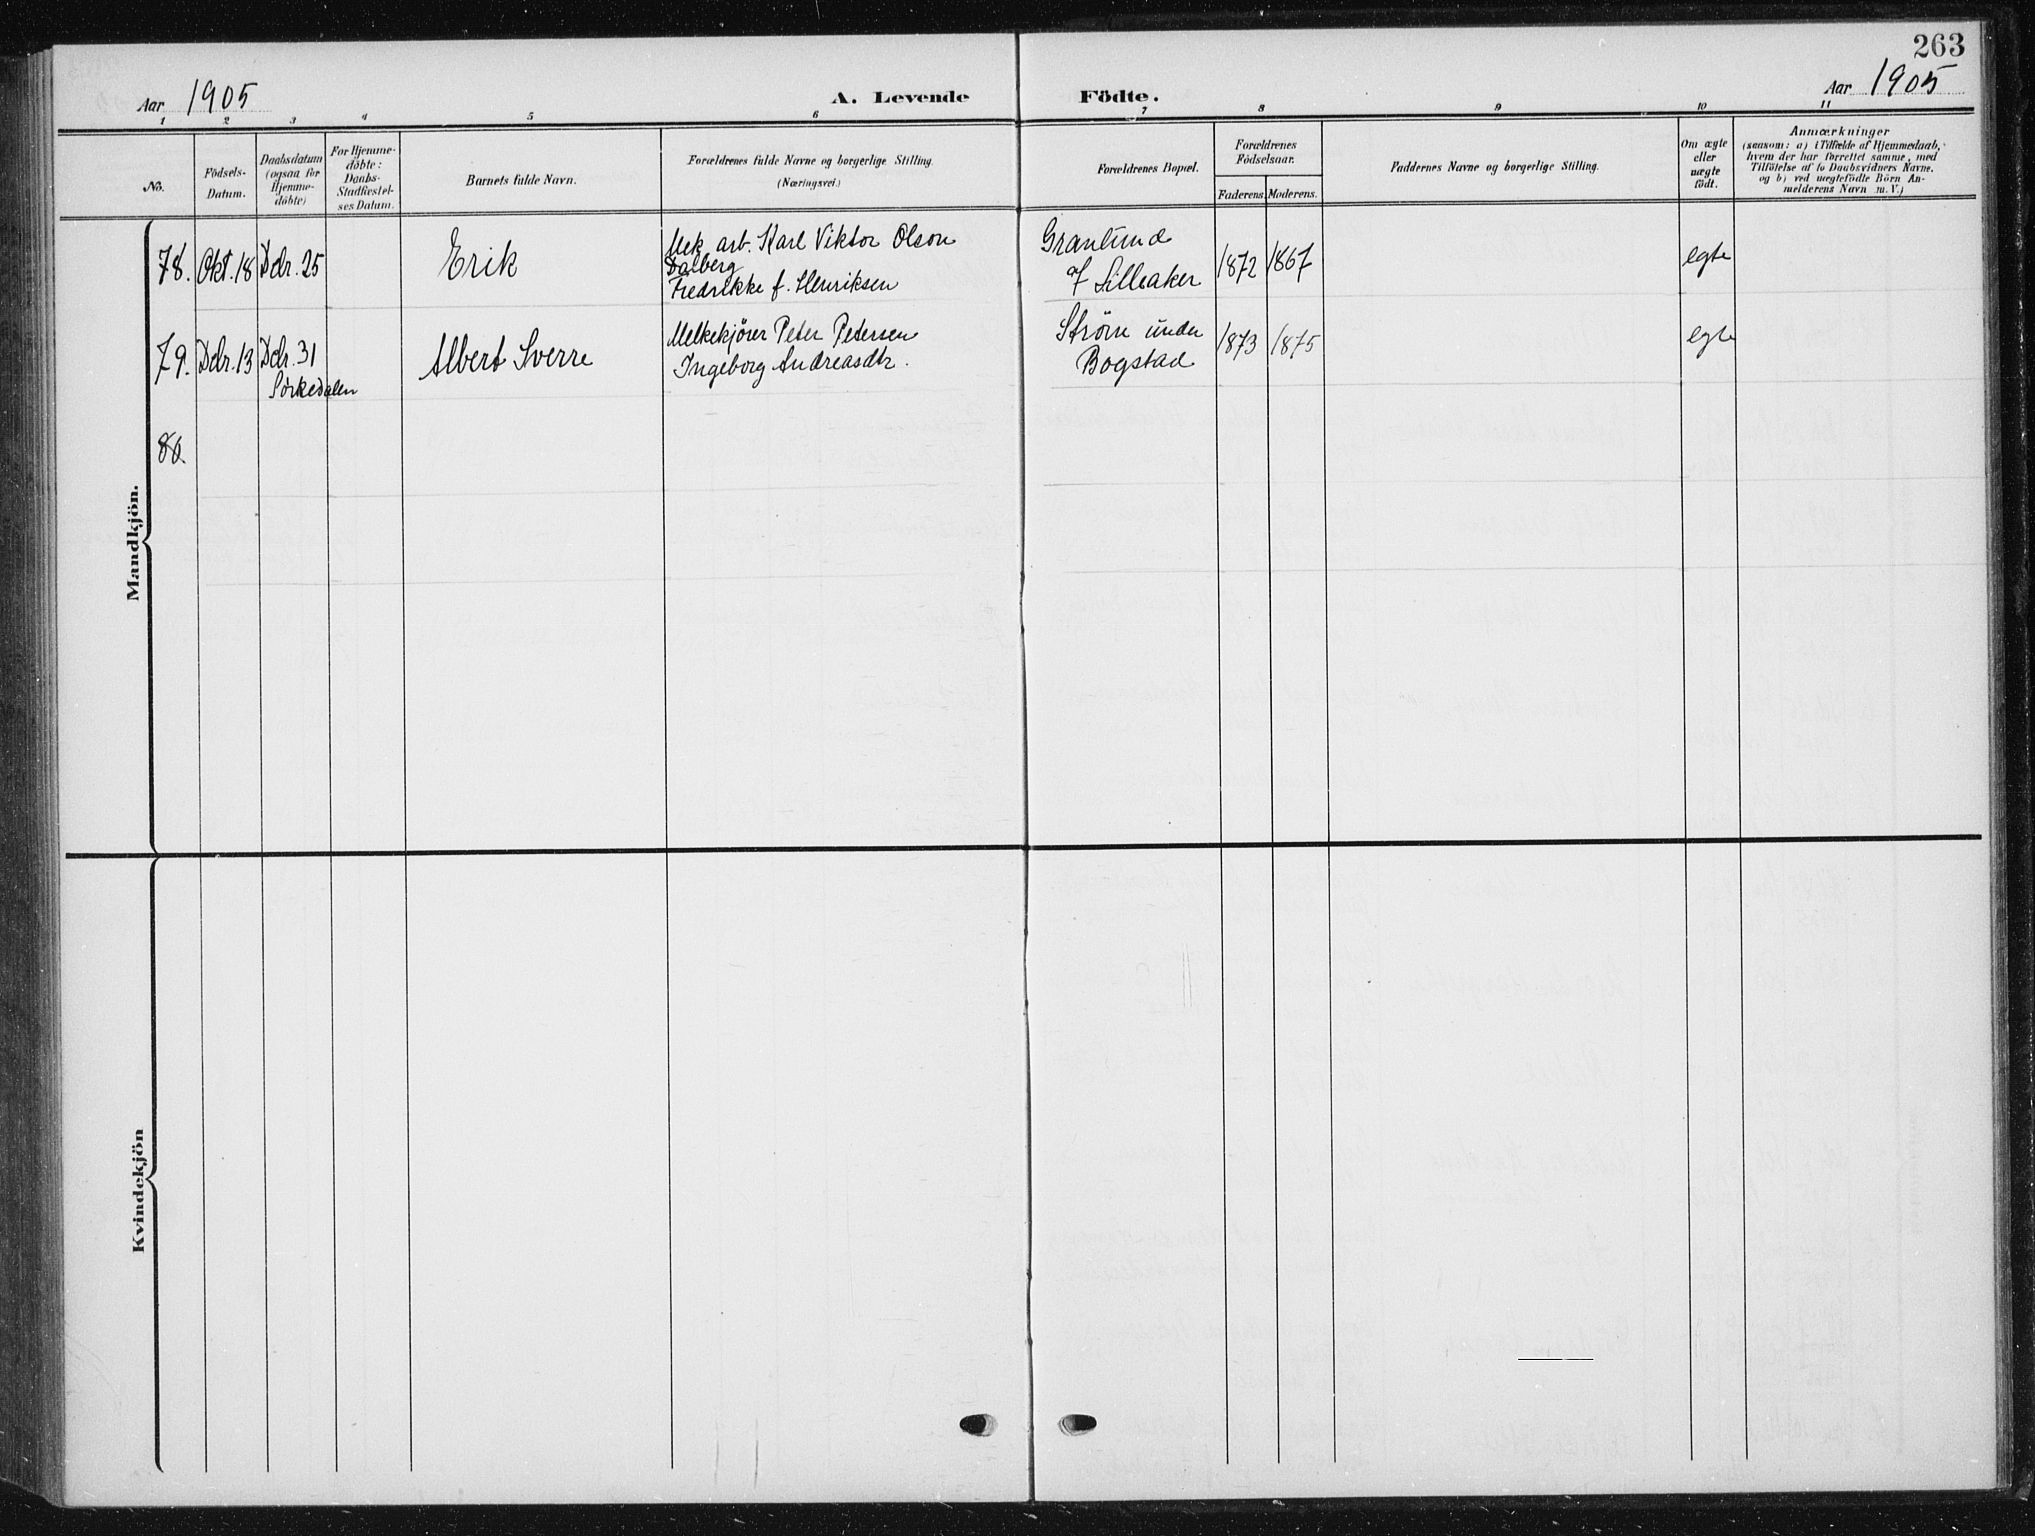 263
Aar 1905
A. Levende Födte.
Aar 1905
1 2 3 4 5 6 7 8 9 10 11
No.
Födsels-
Datum.
Daabsdatum
(ogsaa for
Hjemme-
döbte)
For Hjemme-
döbte:
Daabs-
Stadfæstel-
ses Datum.
Barnets fulde Navn.
Forældrenes fulde Navne og borgerlige Stilling.
(Næringsvei.)
Forældrenes Bopæl.
Forældrenes
Födselsaar.
Faderens. Moderens.
Faddernes Navne og borgerlige Stilling.
Om ægte
eller
uægte
født.
Anmærkninger
(saasom: a) i Tilfælde af Hjemmedaab,
hvem der har forrettet samme, med
Tilföielse af to Daabsvidners Navne.
og b) ved uægtefödte Börn An-
melderens Navn m. V.)
Mandkjön.
78. Okt. 18 Dcbr. 25 Erik
Mek. arb. Karl Viktor Olson
Dalberg
Fredrikke f. Henriksen
Granlund
af Lilleaker
1872 1867 egte
79. Dcbr. 13 Dcbr. 31
Sørkedalen
Albert Sverre
Melkekjører Peter Petersen
Ingeborg Andreasdtr.
Strøm under
Bogstad
1873 1875 egte
80.
Kvindekjön